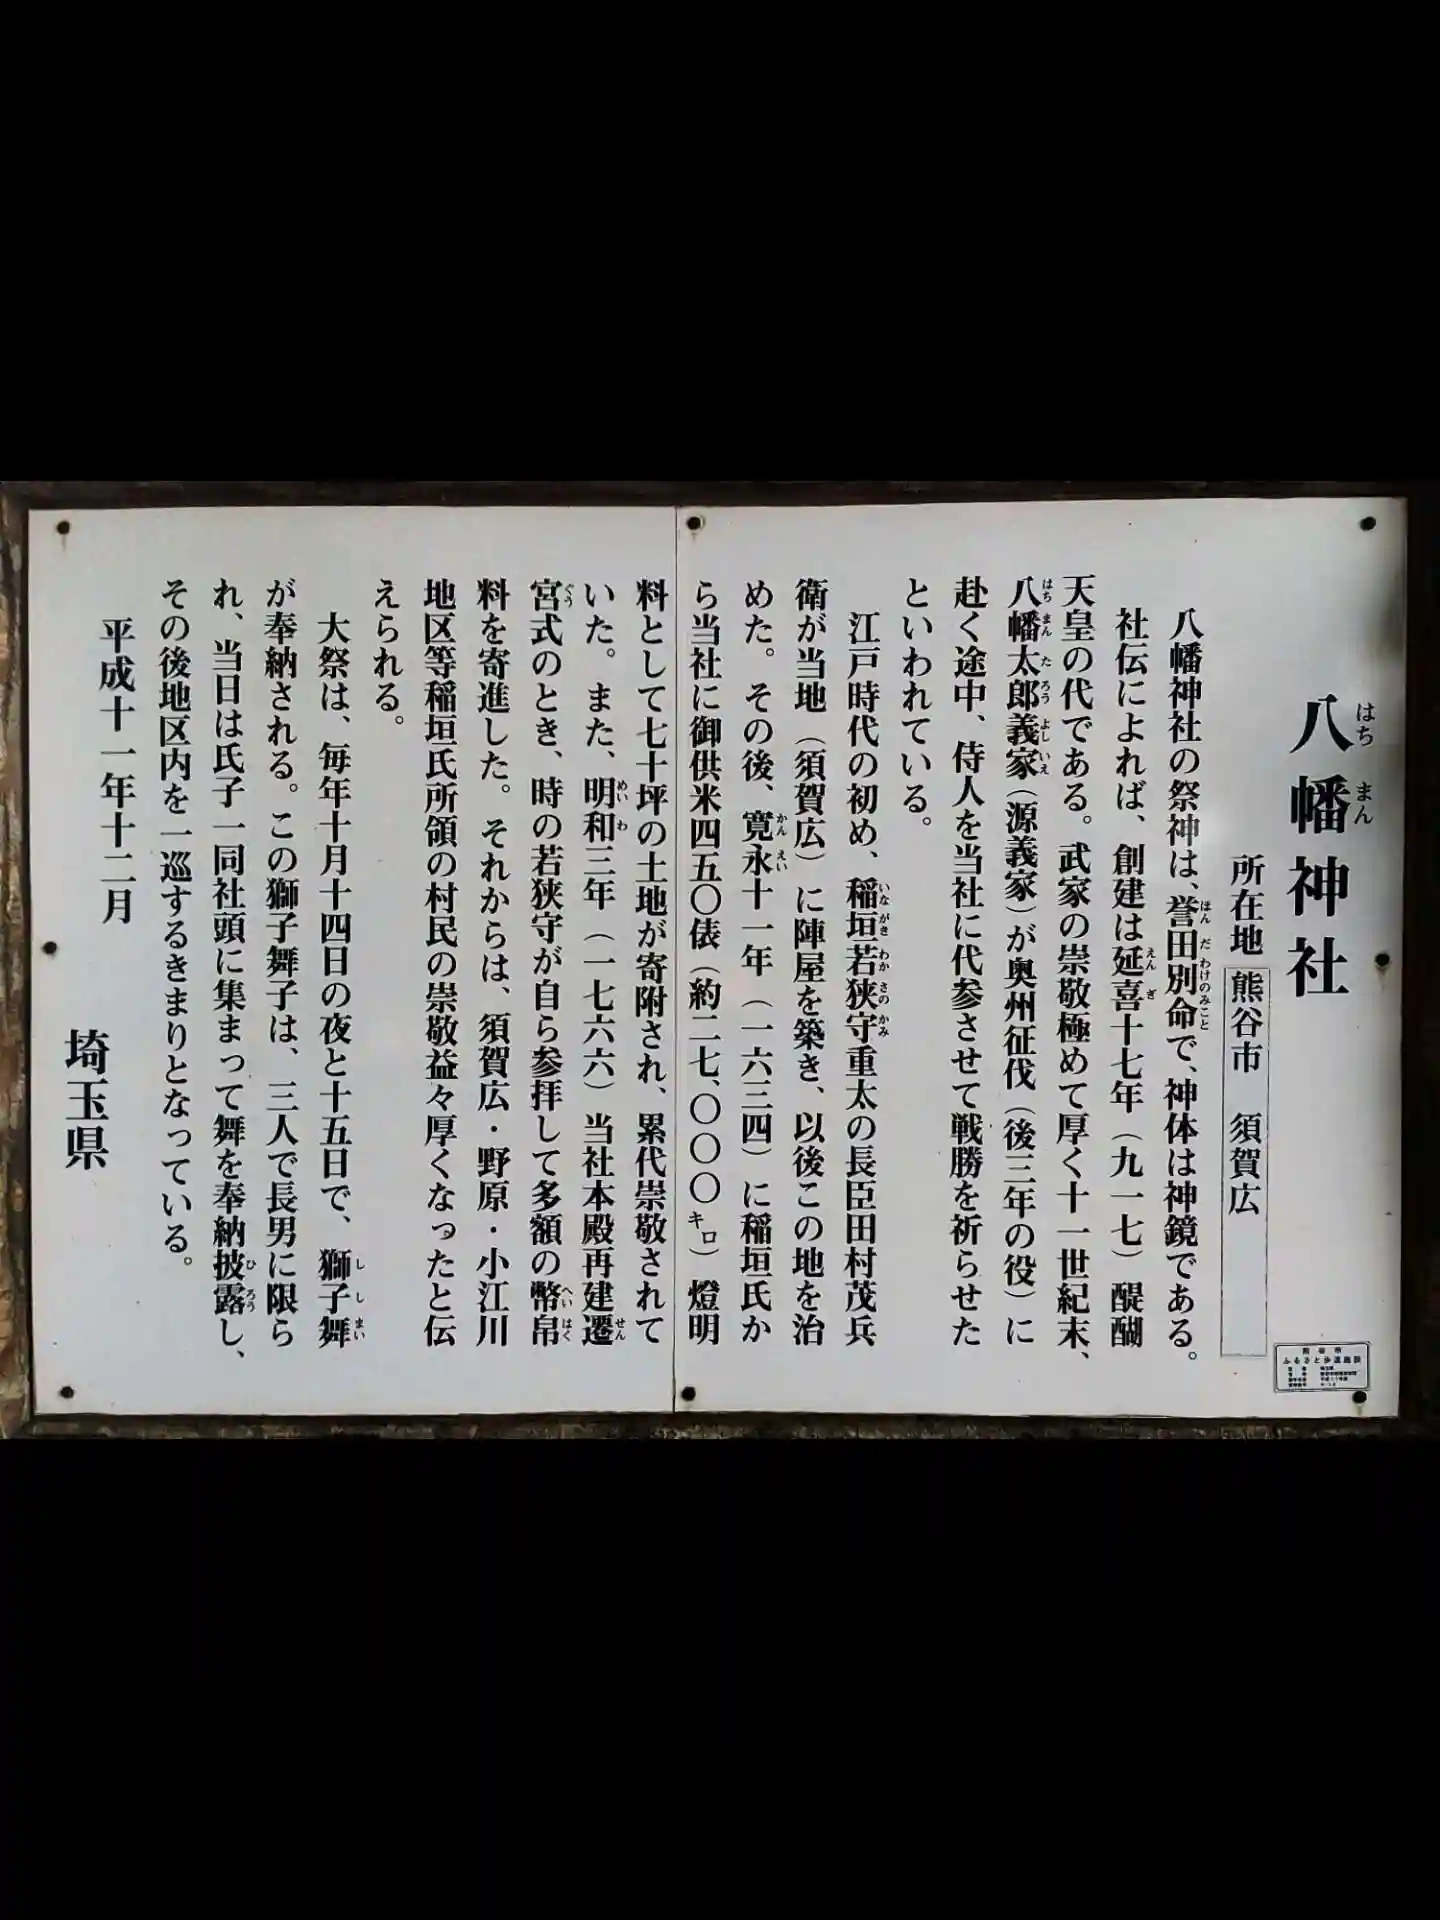 八幡神社
はちまん
所在地 熊谷市 須賀広
八幡神社の祭神は、誉田別命で、神体は神鏡である。
ほんだわけのみこと
社伝によれば、創建は延喜十七年（九一七）醍醐
えんぎ
天皇の代である。武家の崇敬極めて厚く十一世紀末、
八幡太郎義家（源義家）が奥州征伐（後三年の役）に
はちまんたろうよしいえ
赴く途中、侍人を当社に代参させて戦勝を祈らせた
といわれている。
江戸時代の初め、稲垣若狭守重太の長臣田村茂兵
いながきわかさのかみ
衛が当地（須賀広）に陣屋を築き、以後この地を治
めた。その後、寛永十一年（一六三四）に稲垣氏か
かんえい
ら当社に御供米四五〇俵（約二七、〇〇〇キロ）燈明
料として七十坪の土地が寄附され、累代崇敬されて
いた。また、明和三年（一七六六）当社本殿再建遷
めいわ せん
宮式のとき、時の若狭守が自ら参拝して多額の幣帛
ぐう へいはく
料を寄進した。それからは、須賀広・野原・小江川
地区等稲垣氏所領の村民の崇敬益々厚くなったと伝
えられる。
大祭は、毎年十月十四日の夜と十五日で、獅子舞
ししまい
が奉納される。この獅子舞子は、三人で長男に限ら
れ、当日は氏子一同社頭に集まって舞を奉納披露し、
ひろう
その後地区内を一巡するきまりとなっている。
平成十一年十二月
埼玉県
熊谷市
ふるさと歩道施設